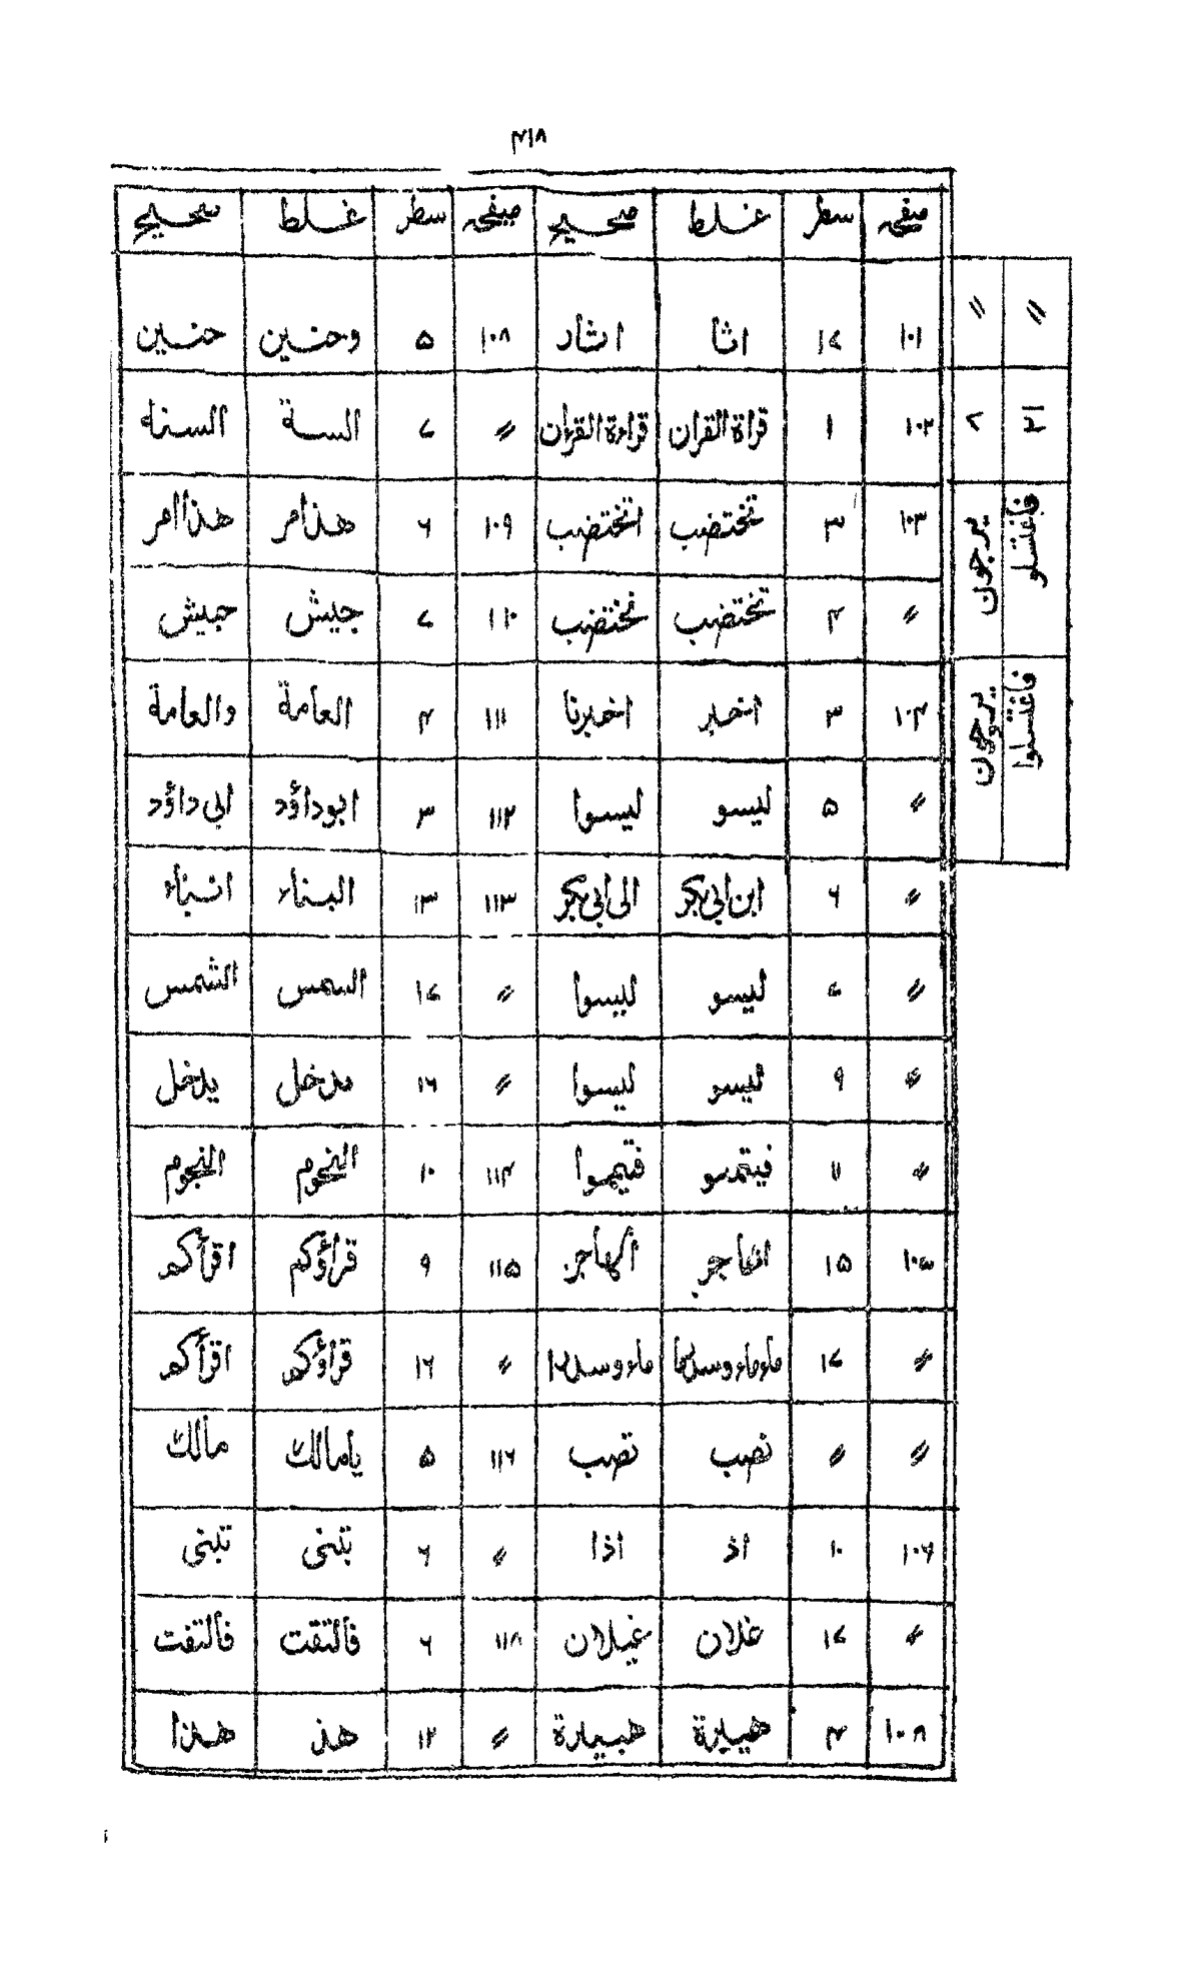 ۴۱۸
صفحہ سطر غلط صحیح صفحہ سطر غلط صحیح
۱۰۱ ۱۷ اثا اثار ۱۰۸ ۵ وحنين حنين
۱۰۲ ۱ قراة القران قراءة القرءان 〃 ۷ السة السنة
۱۰۳ ۳ تختضب اتختضب ۱۰۹ ۶ هذامر هذاامر
〃 ۴ تختضب نختضب ۱۱۰ ۷ جيش حبيش
۱۰۴ ۳ اخبر اخبرنا ۱۱۱ ۴ العامة والعامة
〃 ۵ ليسو ليسوا ۱۱۲ ۳ ابوداؤد ابی داؤد
〃 ۶ ابن ابی بکر الی ابی بکر ۱۱۳ ۱۳ البناء انبناء
〃 ۷ ليسو ليسوا 〃 ۱۷ السمس الشمس
〃 ۹ ليسو ليسوا 〃 ۱۶ مدخل يدخل
〃 ۱۱ فيتمسو فتيمموا ۱۱۴ ۱۰ النحوم النجوم
۱۰۵ ۱۵ اتهاجر أتهاجر ۱۱۵ ۹ قراؤكم اقرأكم
〃 ۱۷ ماء وماء وسدرا ماء وسدرا 〃 ۱۶ قراؤكم اقرأكم
〃 〃 نصب نصب ۱۱۶ ۵ يامالك مالك
۱۰۶ ۱۰ اذ اذا 〃 ۶ تبنى تبنى
〃 ۱۷ غلان غيلان ۱۱۸ ۶ فالتقت فالتفت
۱۰۸ ۴ هيبرة هبيرة 〃 ۱۲ هذ هذا
〃 ۲۱ فاغتسلو فاغتسلوا
〃 ۲ يرجون يرجون